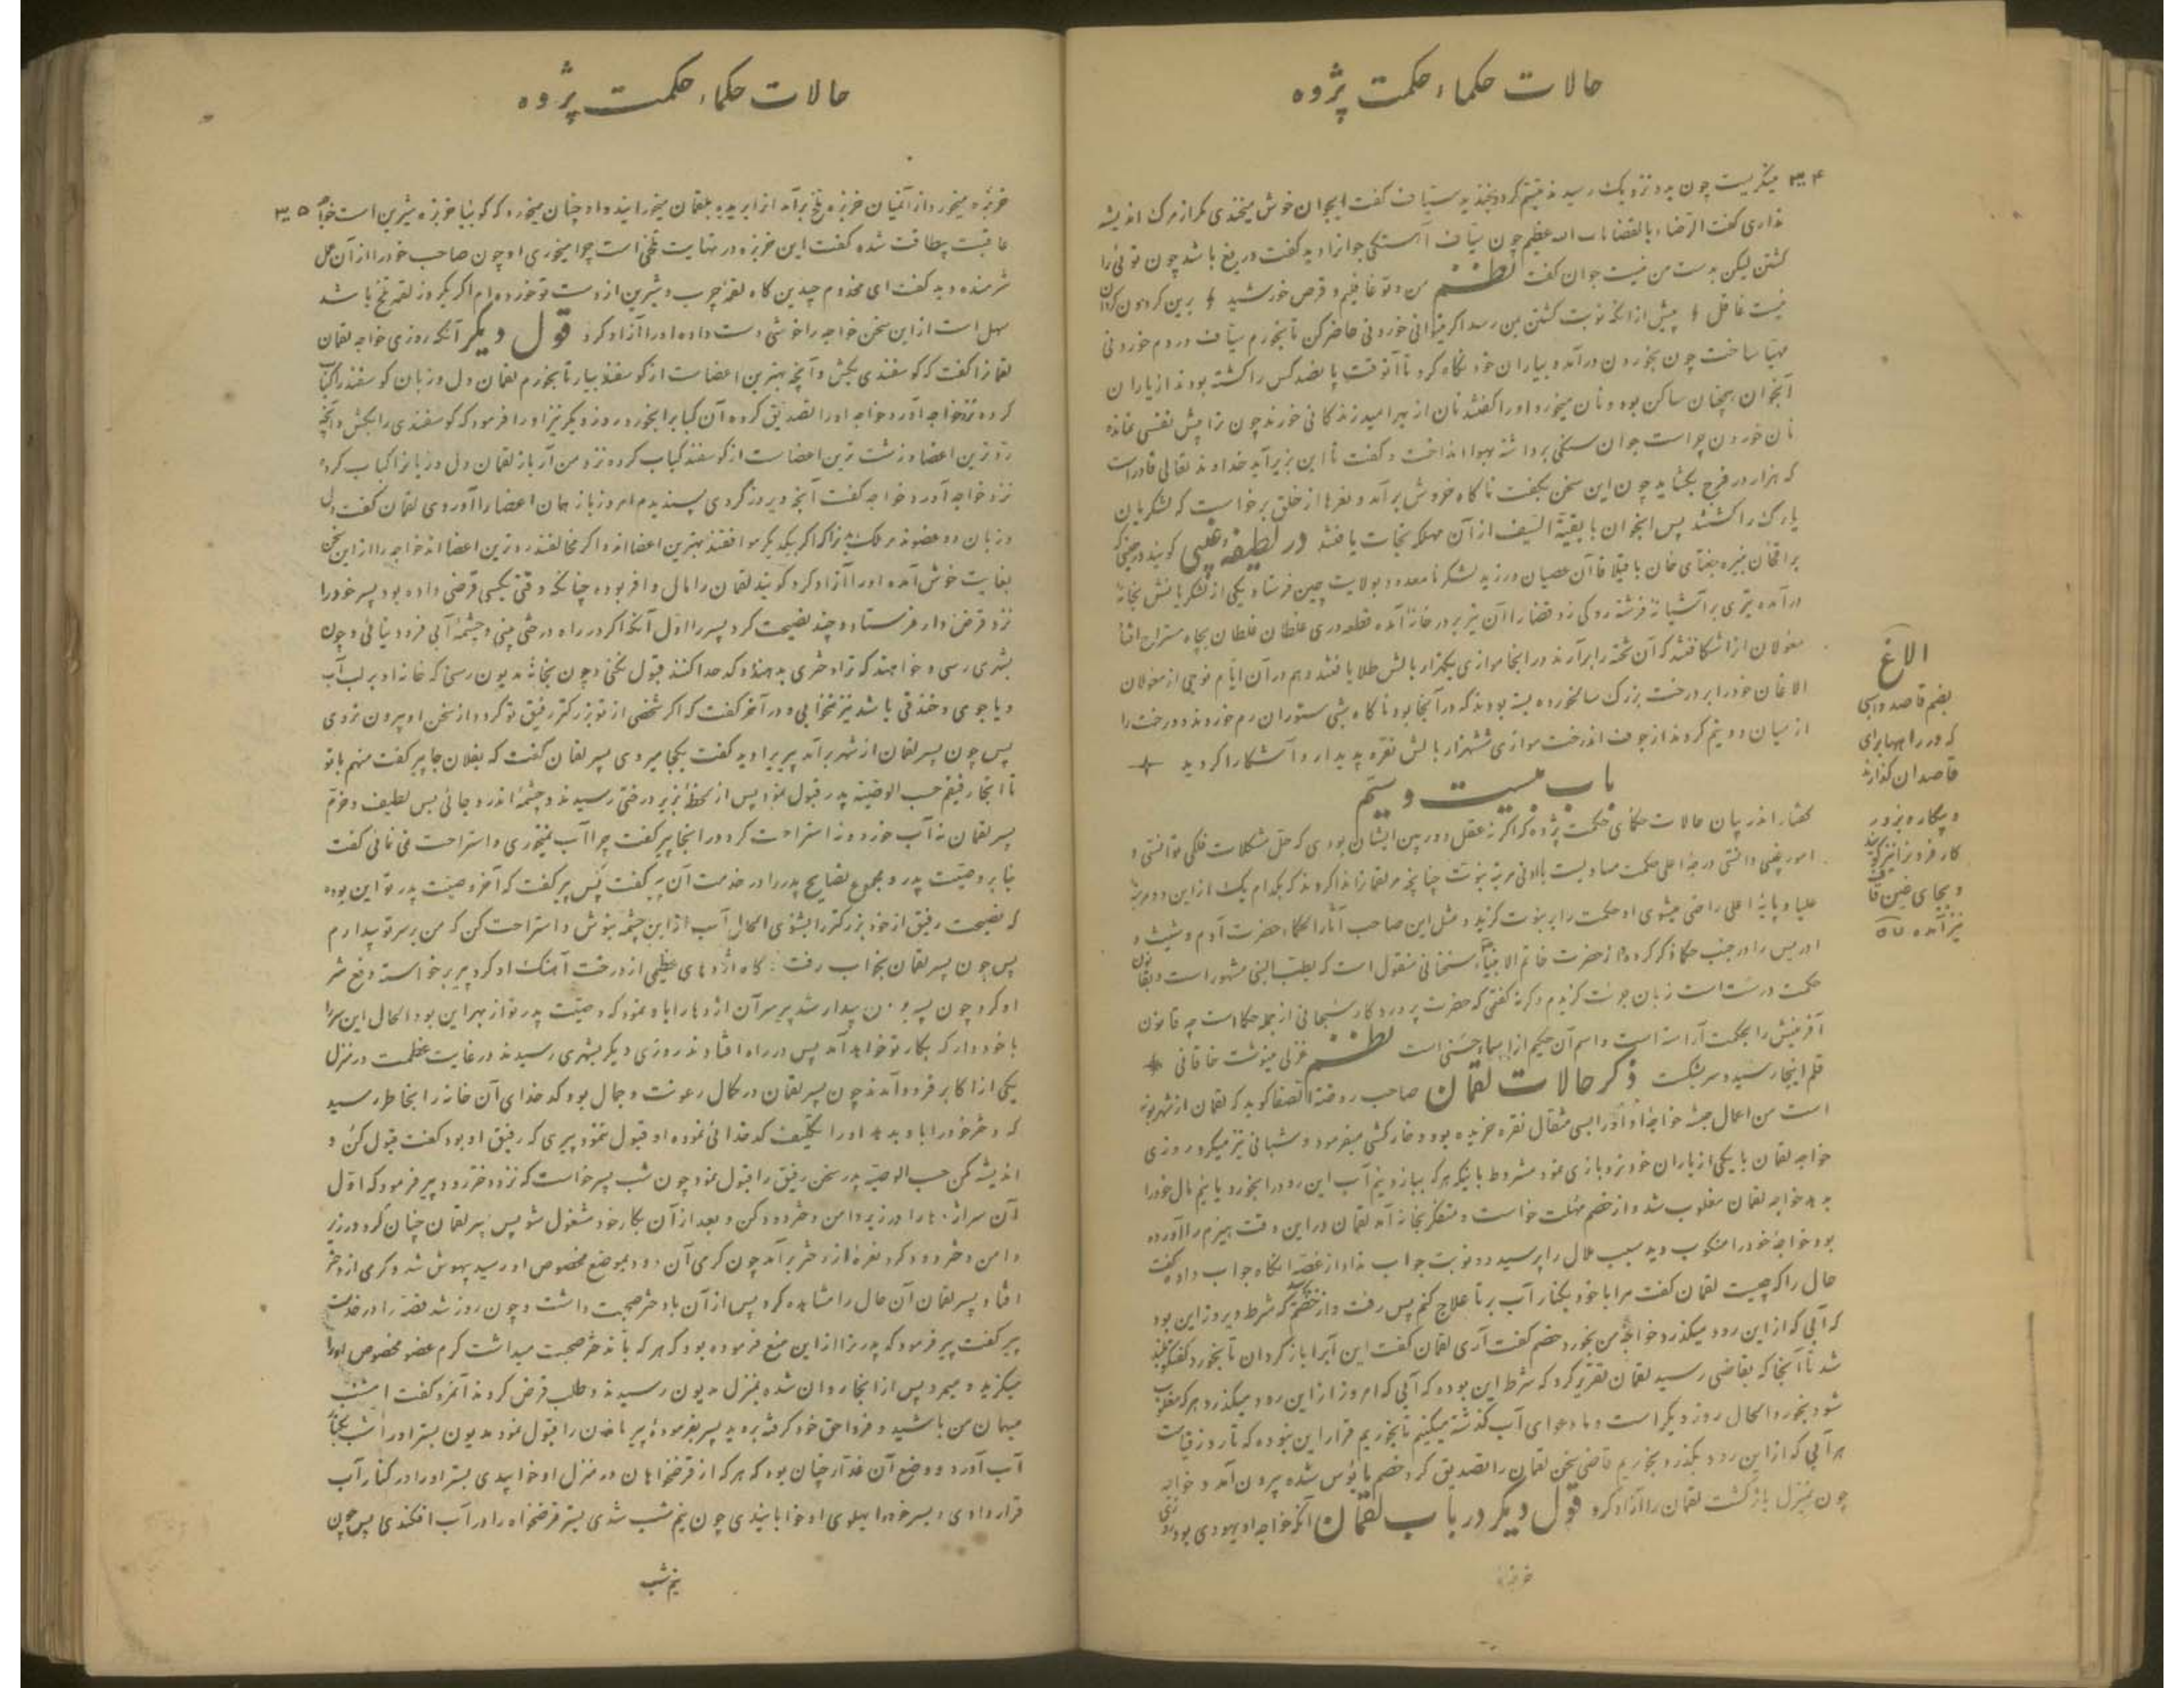 حالات حکماء حکمت پژوه
۳۴ میگریست چون بدو نزدیک رسید تبسم کرد بخندید سیاف گفت ایجوان خوش میخندی مگر از مرگ اندیشه
نداری گفت الرضاء بالقضا باب الله عظیم چون سیاف آهستگی جوانرا دید گفت دریغ باشد چون توئی را
کشتن لیکن بدست من نیست جوان گفت نظم من و تو غافلیم و قرص خورشید برین گردون گردان
نیست غافل پیش از آنکه نوبت کشتن بمن رسد اگر میتوانی خوردنی حاضر کن تا بخورم سیاف در دم خوردنی
مهیا ساخت چون بخوردن درآمد و بیاران خود نگاه کرد تا آنوقت پانصد کس را کشته بودند از یاران
آنجوان همچنان ساکن بود و نان میخورد او را گفتند نان از بهر امید زندگانی خورند چون ترا بیش نفسی نمانده
نان خوردن چراست جوان سنگی برداشته بهوا انداخت و گفت تا این بزیر آید خداوند تعالی قادر است
که هزار در فرج بگشاید چون این سخن بگفت ناگاه خروش برآمد و نعرها از خلق برخواست که لشکریان
یارک را کشتند پس ایجوان با بقیة السیف از آن مهلکه نجات یافتند در لطیفه غیبی گویند در حینی که
براقخان نبیره جغتای خان با قیلا قاآن عصیان ورزید لشکر نامعدود بولایت چین فرستاد یکی از لشکریانش بخانه
درآمده تیری بر آشیانه فرشته روکی زد قضا را آن تیر بر در خانه آمده قطعه دری غلطان غلطان بچاه مستراح افتاد
مغولان آنرا شکافتند که آن تخته را برآرند در آنجا موازی یکهزار بالش طلا یافتند و هم در آن ایام فوجی از مغولان
الاغان خود را بر درخت بزرگ سالخورده بسته بودند که در آنجا بود ناگاه بشبی ستوران رم خوردند و درخت را
از میان دو نیم کردند از جوف آندرخت موازی ششهزار بالش نقره پدیدار و آشکارا گردید
باب بیست و سیم
گفتار اندر بیان حالات حکمای حکمت پژوه که اگر نه عقل دوربین ایشان بودی که حل مشکلات فلکی توانستی و
امور غیبی دانستی درجه اعلی حکمت مساویست بالادنی مرتبه نبوت چنانچه مر لقمانرا ندا کردند که بکدام یک از این دو مرتبه
علیا و پایه اعلی راضی میشوی او حکمت را بر نبوت گزید و مثل این صاحب آثار الحکماء حضرت آدم و شیث و
ادریس را در جنب حکما ذکر کرده و از حضرت خاتم الانبیاء سخنانی منقول است که بطب النبی مشهور است و بقانون
حکمت درست است زبان جرئت گزیدم و گرنه گفتمی که حضرت پروردگار سبحانی از جمله حکما است چه قانون
آفرینش را بحکمت آراسته است و اسم آن حکیم از اسماء حسنی است نظم غزلی مینوشت خاقانی
قلم اینجا رسید و سر بشکست ذکر حالات لقمان صاحب روضة الصفا گوید که لقمان از شهر نوبه
است من اعمال حبشه خواجه او او را بسی مثقال نقره خریده بود و خارکشی میفرمود و شبانی نیز میکرد روزی
خواجه لقمان با یکی از یاران خود نردبازی نمود مشروط باینکه هر که ببازد نیم آب این رود را بخورد یا نیم مال خود را
بدهد خواجه لقمان مغلوب شد و از خصم مهلت خواست و متفکر بخانه آمد لقمان در این وقت هیزم را آورده
بود خواجه خود را منکوب دید سبب ملال را پرسید دو نوبت جواب نداد از غصه آنگاه جواب داده گفت
حال را که چیست لقمان گفت مرا با خود بکنار آب بر تا علاج کنم پس رفت و از خصم پرسید که شرط دیروز این بود
که آبی که از این رود میگذرد خواجه من بخورد خصم گفت آری لقمان گفت این آبرا بازگردان تا بخورد گفتگو بلند
شد تا آنجا که بقاضی رسید لقمان تقریر کرد که شرط این بوده که آبی که امروز از این رود میگذرد هر که مغلوب
شود بخورد الحال روز دیگر است و ما دعوای آب گذشته میکنیم تا بخوریم قرار این نبوده که تا روز قیامت
هر آبی که از این رود بگذرد بخوریم قاضی سخن لقمان را تصدیق کرد خصم مأیوس شده بیرون آمد و خواجه
چون بمنزل بازگشت لقمان را آزاد کرد قول دیگر در باب لقمان آنکه خواجه او یهودی بود روزی
خربزه
الاغ
بضم قاصد و اسبی
که در راهها برای
قاصدان گذارند
و بیگاره بزور
کار فرودن را نیز گویند
و بجای غین قاف
نیز آمده
حالات حکماء حکمت پژوه
خربزه میخورد از آنمیان خربزه تلخ برآمد از ابریده بلقمان میخورانید و او چنان میخورد که گوئیا خربزه شیرین است خواجه ۳۵
عاقبت بیطاقت شده گفت این خربزه در نهایت تلخی است چرا میخوری او چون صاحب خود را از آن عمل
شرمنده دید گفت ای مخدوم چندین گاه لقمه چرب و شیرین از دست تو خورده‌ام اگر یکروز لقمه تلخ باشد
سهل است از این سخن خواجه را خوشی دست داده او را آزاد کرد قول دیگر آنکه روزی خواجه لقمان
لقمانرا گفت که گوسفندی بکش و آنچه بهترین اعضاست از گوسفند بیار تا بخورم لقمان دل و زبان گوسفند را کباب
کرده نزد خواجه آورد خواجه او را تصدیق کرده آن کباب را بخورد روز دیگر نیز او را فرمود که گوسفندی را بکش و آنچه
ردترین اعضا و زشت ترین اعضاست از گوسفند کباب کرده نزد من آر باز لقمان دل و زبانرا کباب کرده
نزد خواجه آورد خواجه گفت آنچه دیروز کردی پسندیدم امروز باز همان اعضا را آوردی لقمان گفت دل
و زبان دو عضوند مر ملک بدنرا که اگر بیکدیگر موافقند بهترین اعضااند و اگر مخالفند ردترین اعضااند خواجه را از این سخن
بغایت خوش آمده او را آزاد کرد گویند لقمان را مالی وافر بوده چنانکه وقتی بکسی قرضی داده بود پسر خود را
نزد قرض دار فرستاد و چند نصیحت کرد پسر را اول آنکه اگر در راه درختی بینی و چشمه آبی فرود نیائی و چون
بشهری رسی و خواهند که ترا دختری بدهند و کدخدا کنند قبول نکنی و چون بخانه مدیون رسی که خانه او بر لب آب
و یا جوی و خندقی باشد نیز نخوابی و در آخر گفت که اگر شخصی از تو بزرگتر رفیق تو گردد از سخن او بیرون نروی
پس چون پسر لقمان از شهر برآمد پیری را دید گفت بکجا میروی پسر لقمان گفت که بفلان جا پیر گفت منهم با تو
تا آنجا رفیقم حسب الوصیته پدر قبول نمود پس از لحظه بزیر درختی رسیدند و چشمه اندر و جائی بس لطیف و خرم
پسر لقمان نه آب خورد و نه استراحت کرد در آنجا پیر گفت چرا آب نمیخوری و استراحت نمی نمائی گفت
بنا بر وصیت پدر و مجموع نصایح پدر را در خدمت آن پیر گفت پس پیر گفت که آخر وصیت پدر تو این بوده
که نصیحت رفیق از خود بزرگتر را بشنوی الحال آب از این چشمه بنوش و استراحت کن که من بر سر تو بیدارم
پس چون پسر لقمان بخواب رفت ناگاه اژدهای عظیمی از درخت آهنگ او کرد پیر برخواسته دفع شر
او کرد چون پسر لقمان بیدار شد پیر سر آن اژدها را باو نمود که وصیت پدر تو از بهر این بود الحال این سر را
با خود دار که بکار تو خواهد آمد پس در راه افتادند روزی دیگر بشهری رسیدند در غایت عظمت در منزل
یکی از اکابر فرود آمدند چون پسر لقمان در کمال رعونت و جمال بود کدخدای آن خانه را بخاطر رسید
که دختر خود را باو بدهد او را تکلیف کدخدائی نموده او قبول ننمود پیری که رفیق او بود گفت قبول کن و
اندیشه مکن حسب الوصیته پدر سخن رفیق را قبول نمود چون شب پسر خواست که نزد دختر رود پیر فرمود که اول
آن سر اژدها را در زیر دامن دختر دود کن و بعد از آن بکار خود مشغول شو پس پسر لقمان چنان کرد و در زیر
دامن دختر دود کرد نعره از دختر برآمد چون گرمی آن دود بموضع مخصوص او رسید بیهوش شد و کرمی از دختر
افتاد پسر لقمان آن حال را مشاهده کرد پس از آن با دختر صحبت داشت و چون روز شد قصه را در خدمت
پیر گفت پیر فرمود که پدر ترا از این منع فرموده بود که هر که با دختر صحبت میداشت کرم عضو مخصوص او را
میگزید و میمرد پس از آنجا روان شده بمنزل مدیون رسیدند و طلب قرض کردند آنمرد گفت امشب
میهمان من باشید و فردا حق خود گرفته بروید پسر بفرموده پیر ماندن را قبول نمود مدیون بستر او را شب بکنار
آب آورد و وضع آن غدار چنان بود که هر که از قرضخواهان در منزل او خوابیدی بستر او را در کنار آب
قرار دادی و پسر خود را بپهلوی او خوابانیدی چون نیم شب شدی بستر قرضخواه را در آب افکندی پس چون
نیم شب